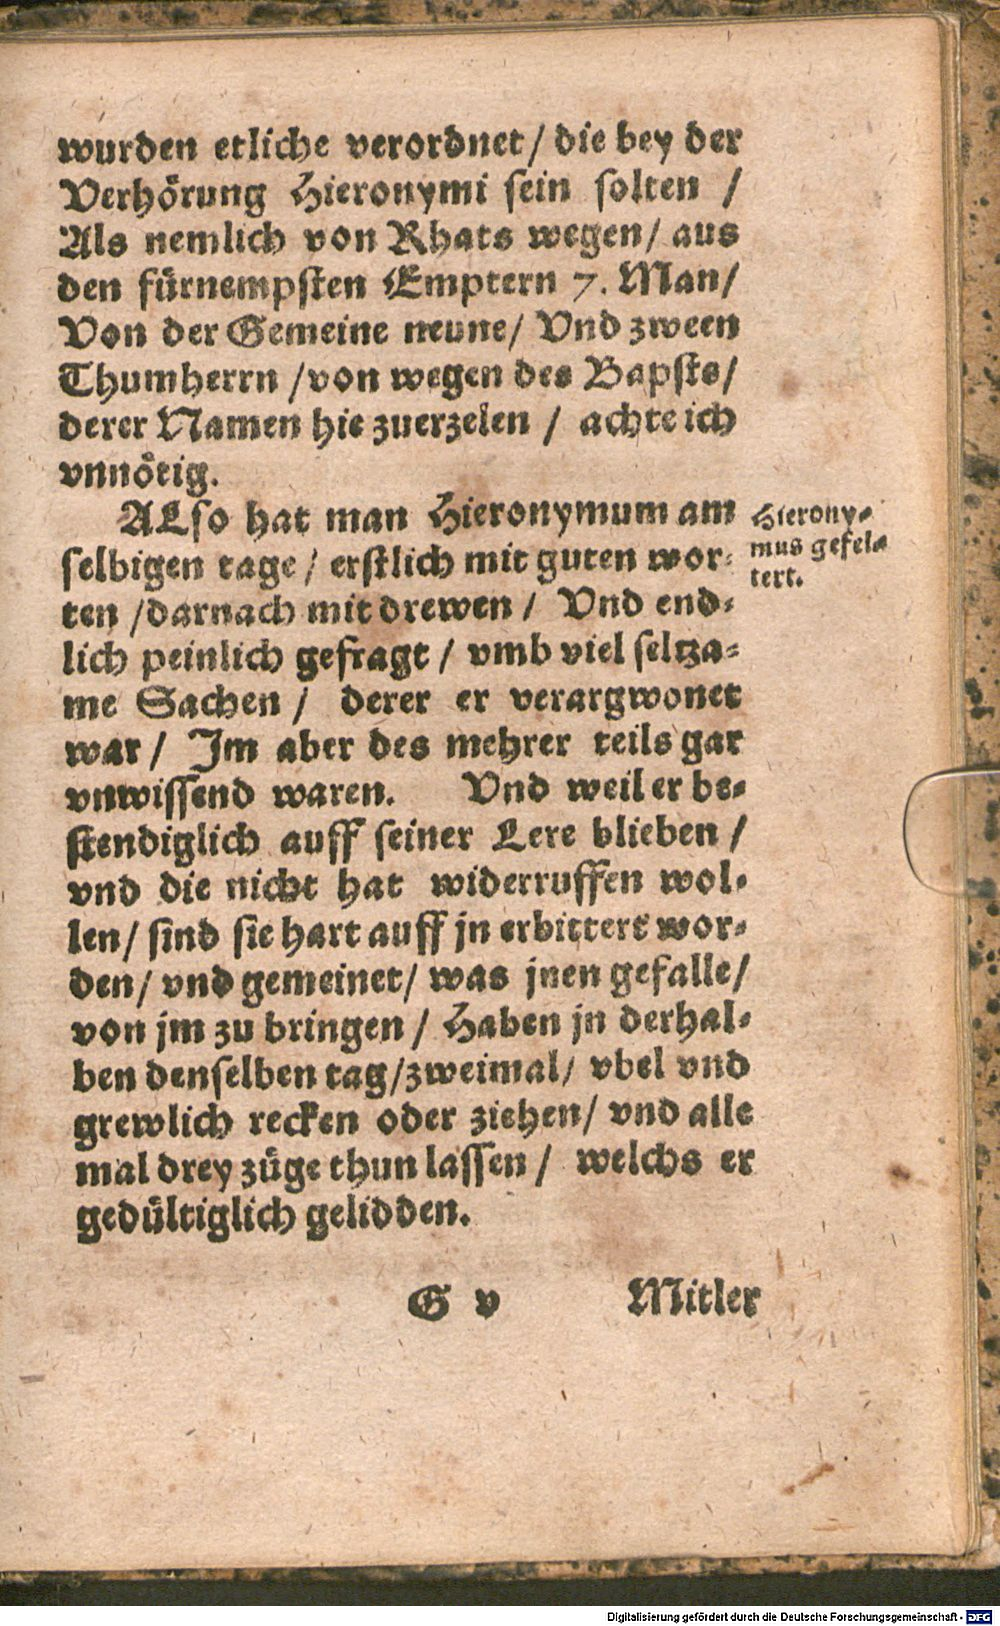 wurden etliche verordnet/ die bey der
Verhörung Hieronymi sein solten /
Als nemlich von Rhats wegen/ aus
den fürnempsten Emptern 7. Man/
Von der Gemeine neune/ Vnd zween
Thumherrn /von wegen des Bapsts/
derer Namen hie zuerzelen / achte ich
vnnötig.
ALso hat man Hieronymum am
selbigen tage / erstlich mit guten wor-
ten /darnach mit drewen / Vnd end-
lich peinlich gefragt / vmb viel seltza-
me Sachen / derer er verargwonet
war / Im aber des mehrer teils gar
vnwissend waren. Vnd weil er be-
stendiglich auff seiner Lere blieben /
vnd die nicht hat widerruffen wol-
len/ sind sie hart auff jn erbittert wor-
den/ vnd gemeinet/ was jnen gefalle/
von jm zu bringen / Haben jn derhal-
ben denselben tag/zweimal/ vbel vnd
grewlich recken oder ziehen/ vnd alle
mal drey züge thun lassen / welchs er
gedültiglich gelidden.
Hierony-
mus gefel-
tert.
G v Mitler
Digitalisierung gefördert durch die Deutsche Forschungsgemeinschaft - DFG